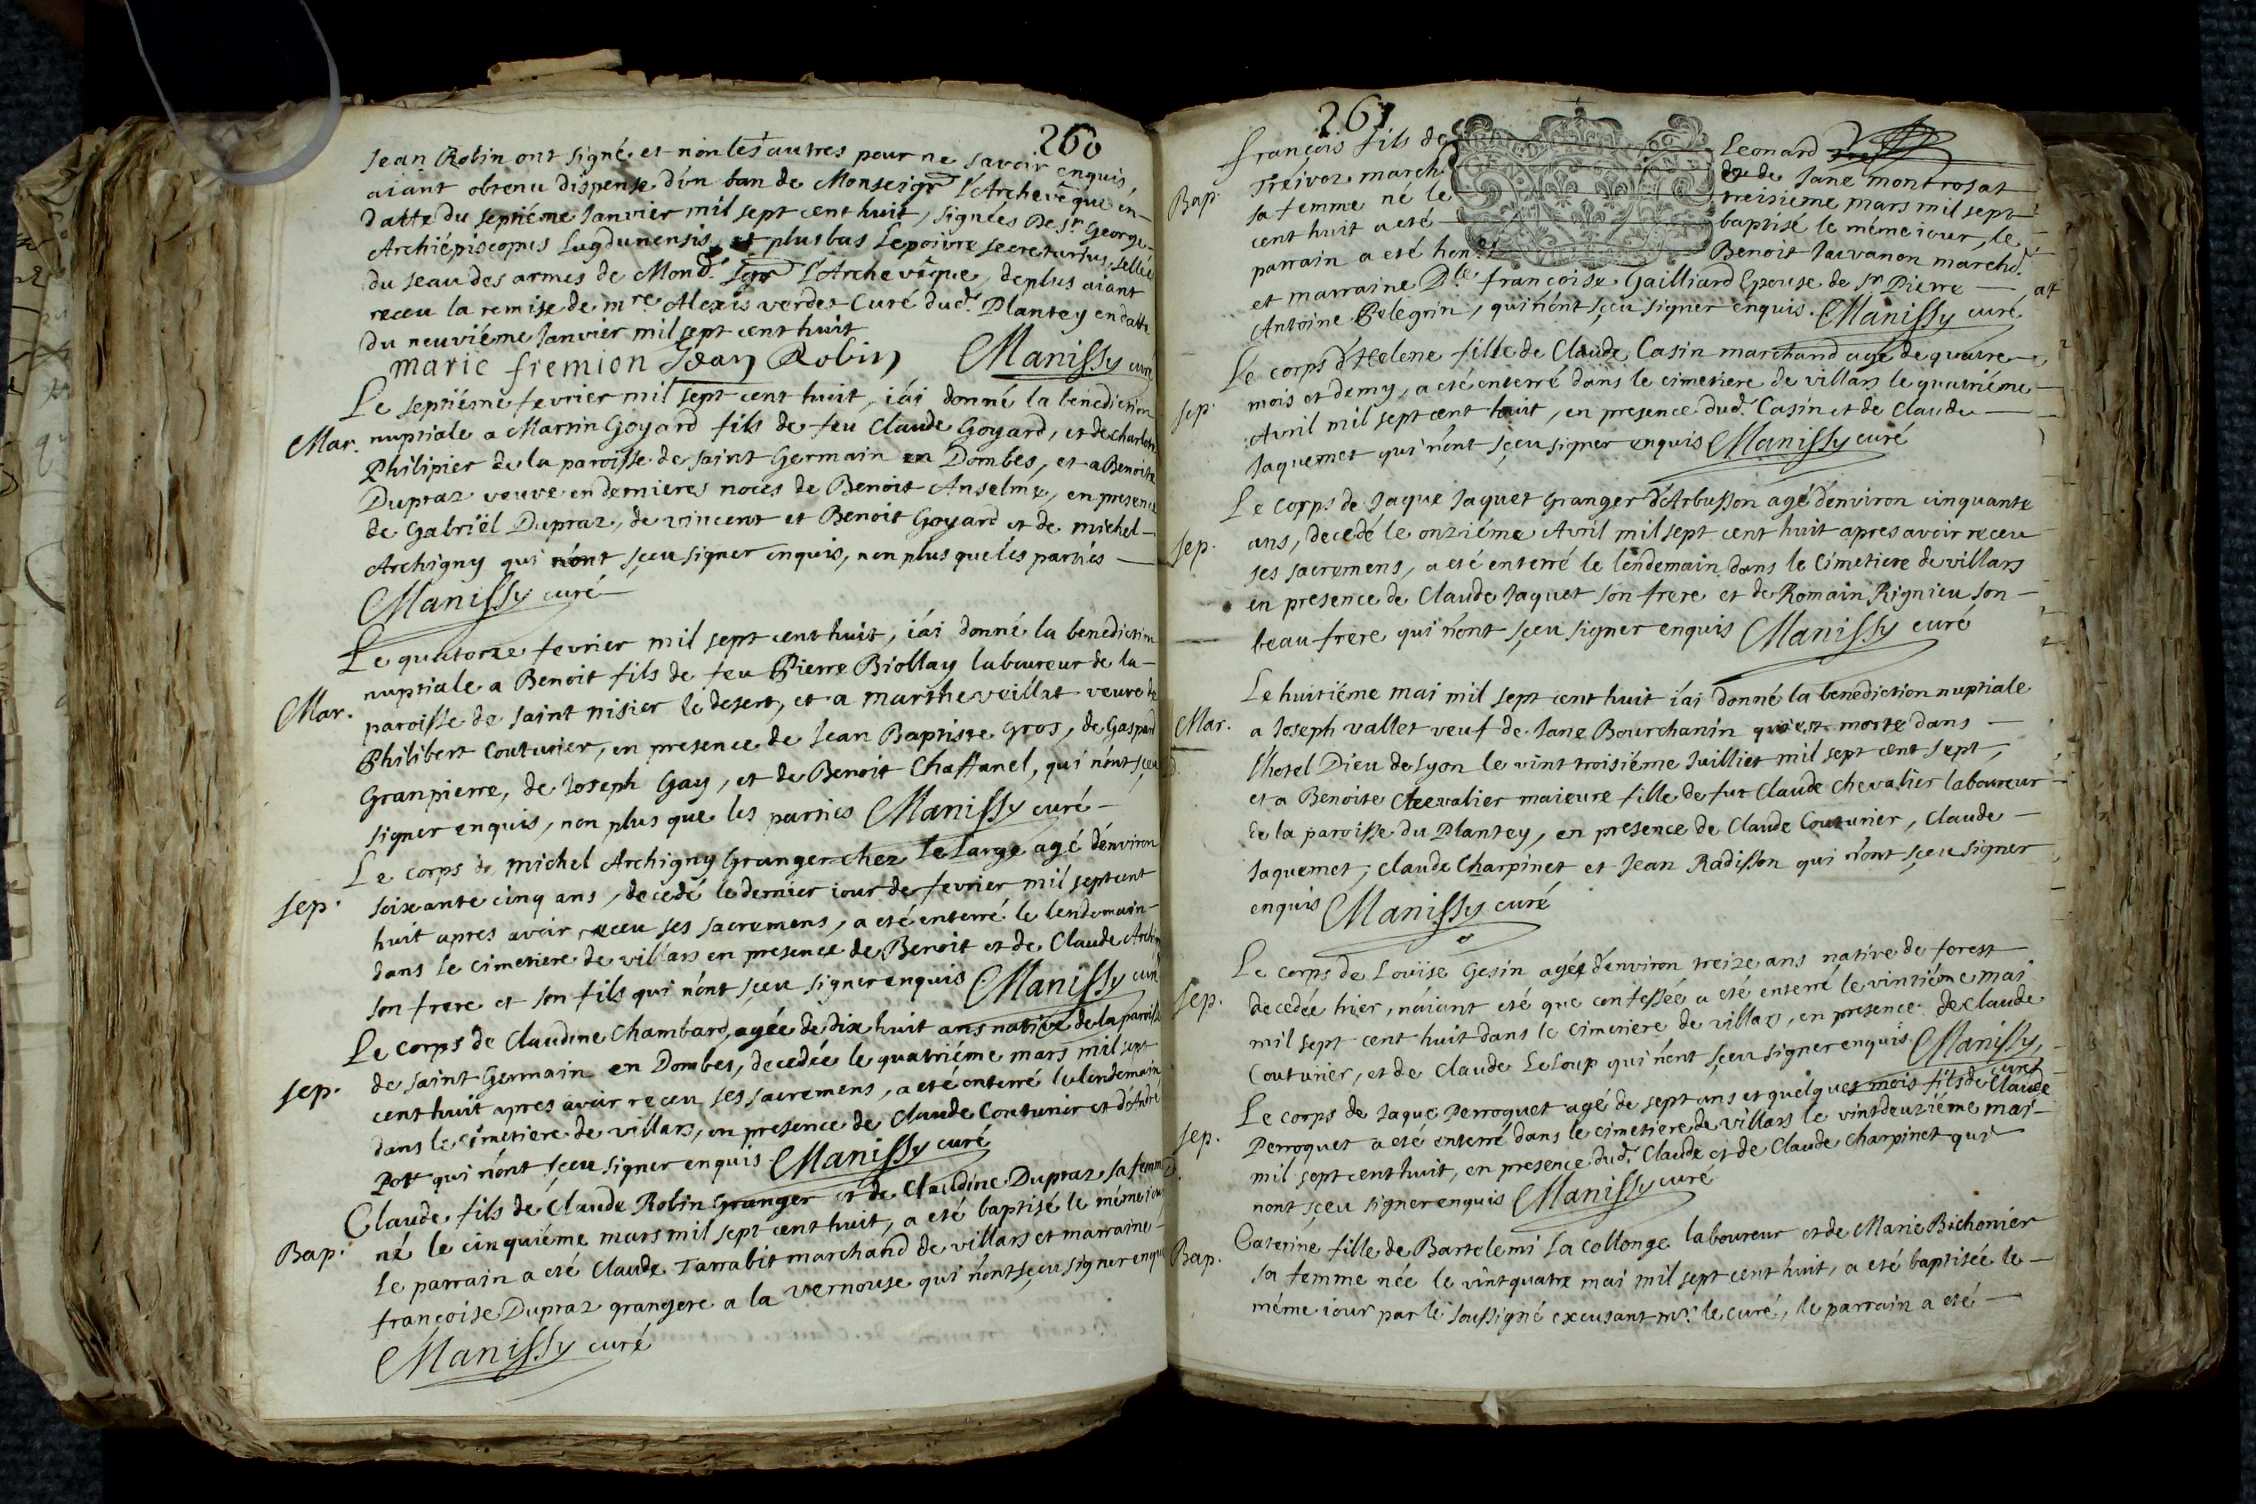 260
Jean Robin ont signé et non les autres pour ne savoir enquis,
aiant obtenu dispense d'un ban de Monseigr l'Archevêque en
datte du septiéme Janvier mil sept cent huit, signées De St George
Archiépiscopus Lugdunensis et plus bas Lepoivre secretarius, sellée
du seau des armes de Mond. Sgr l'Archevêque, deplus aiant
receu la remise de mre Alexis verdet Curé dud. Plantey en datte
du neuviéme Janvier mil sept cent huit
marie fremion Jean Robin Manissy curé
Le septiéme fevrier mil sept cent huit, i'ai donné la benediction
Mar. nuptiale a Martin Goyard fils de feu Claude Goyard, et de charlotte
Philipier de la paroisse de saint Germain en Dombes, et a Benoite
Dupraz veuve en dernieres noces de Benoit Anselme, en presence
de Gabriël Dupraz, de vincent et Benoit Goyard et de michel
Archigny qui n'ont sçeu signer enquis, non plus que les parties
Manissy curé
Le quatorze fevrier mil sept cent huit, i'ai donné la benediction
Mar. nuptiale a Benoit fils de feu Pierre Biollay laboureur de la
paroisse de saint nisier le desert, et a marthe veillat veuve de
Philibert Couturier, en presence de Jean Baptiste Gros, de Gaspard
Granpierre, de Joseph Gay, et de Benoit Chaffanel, qui n'ont sçeu
signer enquis, non plus que les parties Manissy curé
Le corps de michel Archigny Granger chez le large agé d'environ
sep. soixante cinq ans, decedé le dernier iour de fevrier mil sept cent
huit apres avoir receu ses sacremens, a eté enterré le lendemain
dans le cimetiere de villars en presence de Benoit et de Claude Archi
son frere et son fils qui n'ont sçeu signer enquis Manissy curé
Le corps de Claudine Chambard, agée de dix huit ans native de la paroisse
sep. de saint Germain en Dombes, decedée le quatriéme mars mil sept
cent huit apres avoir receu ses sacremens, a eté enterré le lendemain
dans le cimetiere de villars, en presence de Claude Couturier et d'André
Pott qui n'ont sçeu signer enquis Manissy curé
Claude fils de Claude Robin Granger et de Claudine Dupraz sa femme
Bap. né le cinquiéme mars mil sept cent huit, a eté baptisé le méme iour
Le parrain a eté Claude Tarrabit marchand de villars et marraine
françoise Dupraz grangere a la vernouse qui n'ont sçeu signer enquis
Manissy curé
261
françois fils de Leonard
Bap. Treivoz march et de Jane montrosat
sa femme né le treisieme mars mil sept
cent huit a eté baptisé le méme iour, le
parrain a eté hon Benoit Jarvanon marchd.
et marraine Dle françoise Gailliard Epouse de Sr Pierre
Antoine Pelegrin, qui n'ont sçeu signer enquis. Manissy curé
Le corps d'Helene fille de Claude Casin marchand agé de quatre
sep. mois et demy, a eté enterré dans le cimetiere de villars le quatriéme
Avril mil sept cent huit, en presence dud. Casin et de Claude
Jaquemet qui n'ont sçeu signer enquis Manissy curé
Le corps de Jaque Jaquet Granger d'Arbusson agé d'environ cinquante
sep. ans, decedé le onziéme Avril mil sept cent huit apres avoir receu
ses sacremens, a eté enterré le lendemain dans le Cimetiere de villars
en presence de Claude Jaquet son frere et de Romain Rignieu son
beau frere qui n'ont sçeu signer enquis Manissy curé
Le huitiéme mai mil sept cent huit i'ai donné la benediction nuptiale
Mar. a Joseph vallet veuf de Jane Bourchanin qui est morte dans
l'hotel Dieu de Lyon le vint troisiéme Juilliet mil sept cent sept,
et a Benoite Chevalier maieure fille de fut Claude Chevalier laboureur
de la paroisse du Plantey, en presence de Claude Couturier, Claude
Jaquemet, Claude Charpinet et Jean Radisson qui n'ont sçeu signer
enquis Manissy curé
Le corps de Loüise Gesin agée d'environ treize ans native de forest
sep. decedée hier, n'aiant eté que confessée a eté enterré le vintiéme mai
mil sept cent huit dans le cimetiere de villars, en presence de Claude
Couturier, et de Claude Leloup qui n'ont sçeu signer enquis Manissy
curé
Le corps de Jaque Perroquet agé de sept ans et quelques mois fils de Claude
sep. Perroquet a eté enterré dans le cimetiere de villars le vint deuxiéme mai
mil sept cent huit, en presence dud. Claude et de Claude Charpinet qui
nont sçeu signer enquis Manissy curé
Caterine fille de Bartelemi La Collonge laboureur et de Marie Bichonier
Bap. sa femme née le vint quatre mai mil sept cent huit, a eté baptisée le
méme iour par le soussigné excusant mr. le curé, le parrain a eté